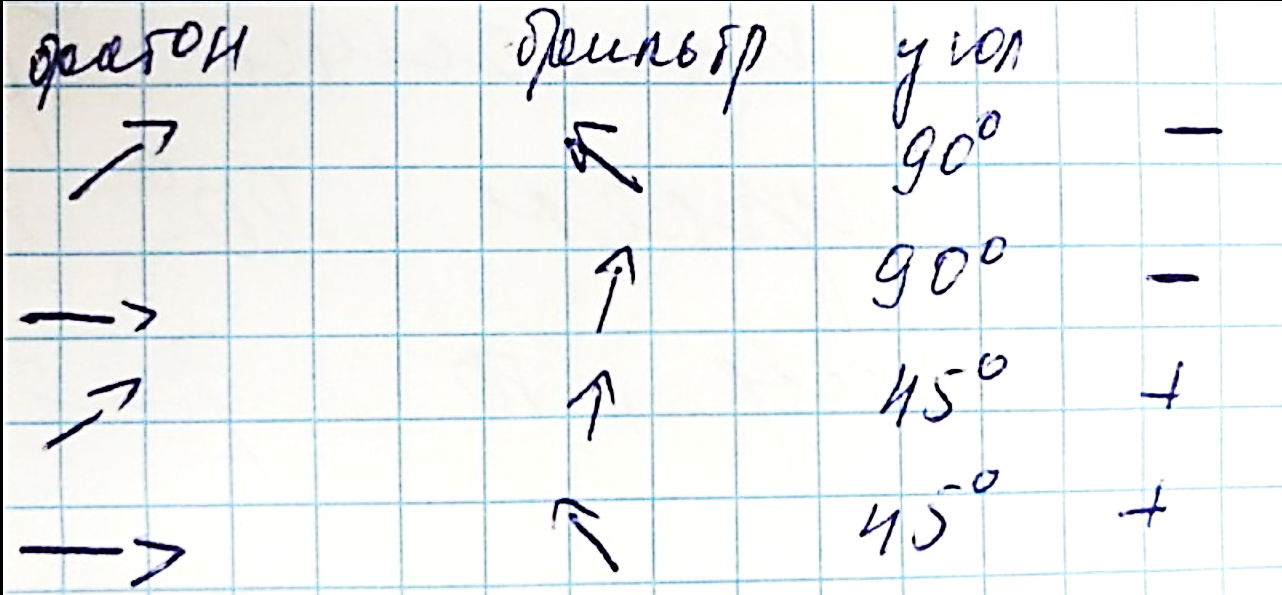 фотон фильтр угол
↗ ↖ 90° −
→ ↑ 90° −
↗ ↑ 45° +
→ ↖ 45° +